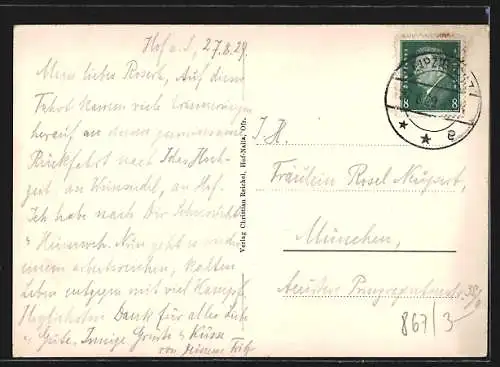 Hof a. S., 27.8.29.
Mein liebes Roserl, Auf dieser
Fahrt kamen viele Erinnerungen
herauf an unsere gemeinsame
Rückfahrt nach
an Wunsiedel, an Hof.
Ich habe nach Dir Sehnsucht
u Heimweh. Nun geht es wieder
einem arbeitsreichen, kalten
Leben entgegen mit viel Kampf.
Herzlichsten Dank für alles Liebe
u Gute. Innige Grüsse u Küsse
von Deinem Fritz
Verlag Christian Reichel, Hof-Naila, Ofr.
LEIPZIG
8 8
a
Fräulein Rosel Neupert,
München,
Äussere Prinzregentenstr.
867/3